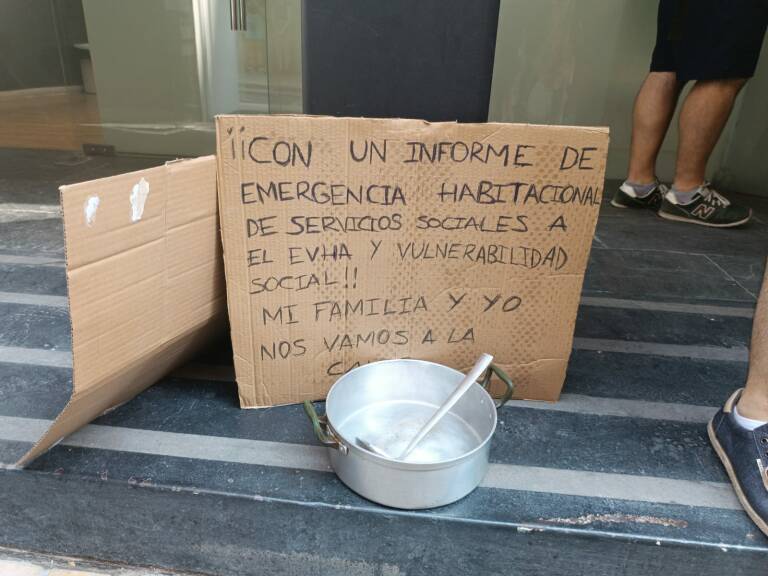 ¡¡CON UN INFORME DE
EMERGENCIA HABITACIONAL
DE SERVICIOS SOCIALES A
EL EVHA Y VULNERABILIDAD
SOCIAL!!
MI FAMILIA Y YO
NOS VAMOS A LA